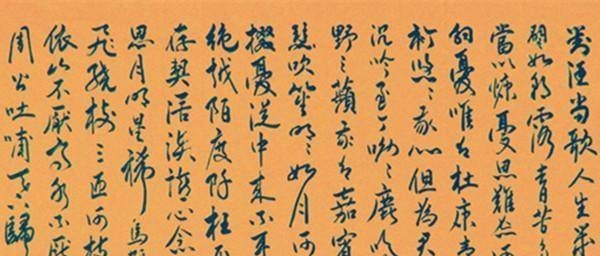 對酒當歌人生幾
譬如朝露去日苦多
當以慷憂思難忘何
解憂唯有杜康青
衿悠々我心但為君
沉吟至今呦々鹿鳴
野之蘋我有嘉賓
瑟吹笙明々如月何
掇憂從中來不可
絕越陌度阡枉
存契闊談讌心念
恩月明星稀烏
飛繞樹三匝何枝
依山不厭高水不厭
周公吐哺天下歸